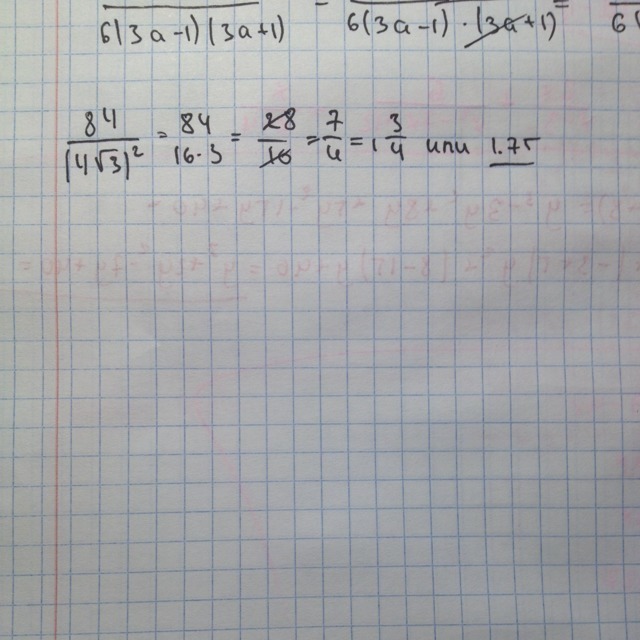 6(3a-1)(3a+1) - 6(3a-1)·(3a+1) = 6(
84/(4√3)² = 84/16·3 = 28/16 = 7/4 = 1 3/4 или 1.75